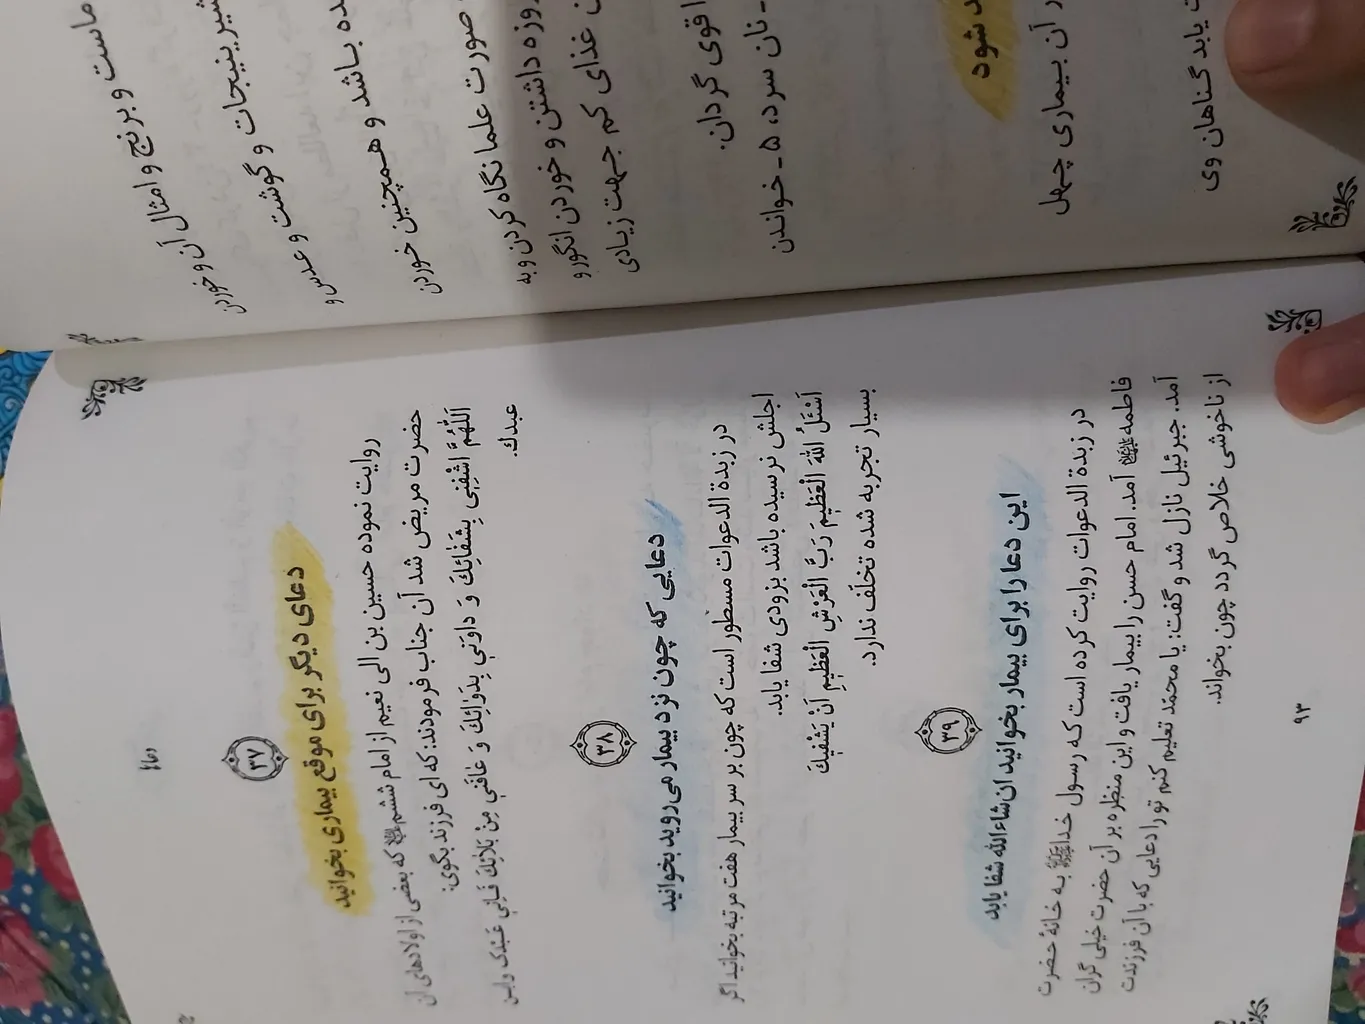 ماست و برنج و امثال آن و خوردن
شیرینیجات و گوشت و عدس و
ده باشد و همچنین خوردن
صورت علما نگاه کردن و به
روزه داشتن و خوردن انگور و
غذای کم جهت زیادی
قوی گردان.
- نان سرد، ۵ - خواندن
د شود
ر آن بیماری چهل
ت یابد گناهان وی
دعاء
۳۷
دعای دیگر برای موقع بیماری بخوانید
روایت نموده حسین بن الی نعیم از امام ششم که بعضی از اولادهای آن
حضرت مریض شد آن جناب فرمودند: که ای فرزند بگوی:
اَللّهُمَّ اشْفِنِی بِشَفائِكَ وَ داوِنی بِدَوائِكَ وَ عافَنی مِنْ بَلائِكَ فَاِنی عَبْدَک وابن
عبدك.
۳۸
دعایی که چون نزد بیمار می‌روید بخوانید
در زبدة الدعوات مسطور است که چون بر سر بیمار هفت مرتبه بخوانید اگر
اجلش نرسیده باشد بزودی شفا یابد.
اَسْئَلُ اللهَ الْعَظیمَ رَبَّ الْعَرْشِ الْعَظیمِ اَنْ یَشْفیكَ
بسیار تجربه شده تخلّف ندارد.
۳۹
این دعا را برای بیمار بخوانید ان‌شاءالله شفا یابد
در زبدة الدعوات روایت کرده است که رسول خدا ﷺ به خانهٔ حضرت
فاطمه آمد. امام حسن را بیمار یافت و این منظره بر آن حضرت خیلی گران
آمد. جبرئیل نازل شد و گفت: یا محمّد تعلیم کنم تو را دعایی که با آن فرزندت
از ناخوشی خلاص گردد چون بخواند.
۹۳